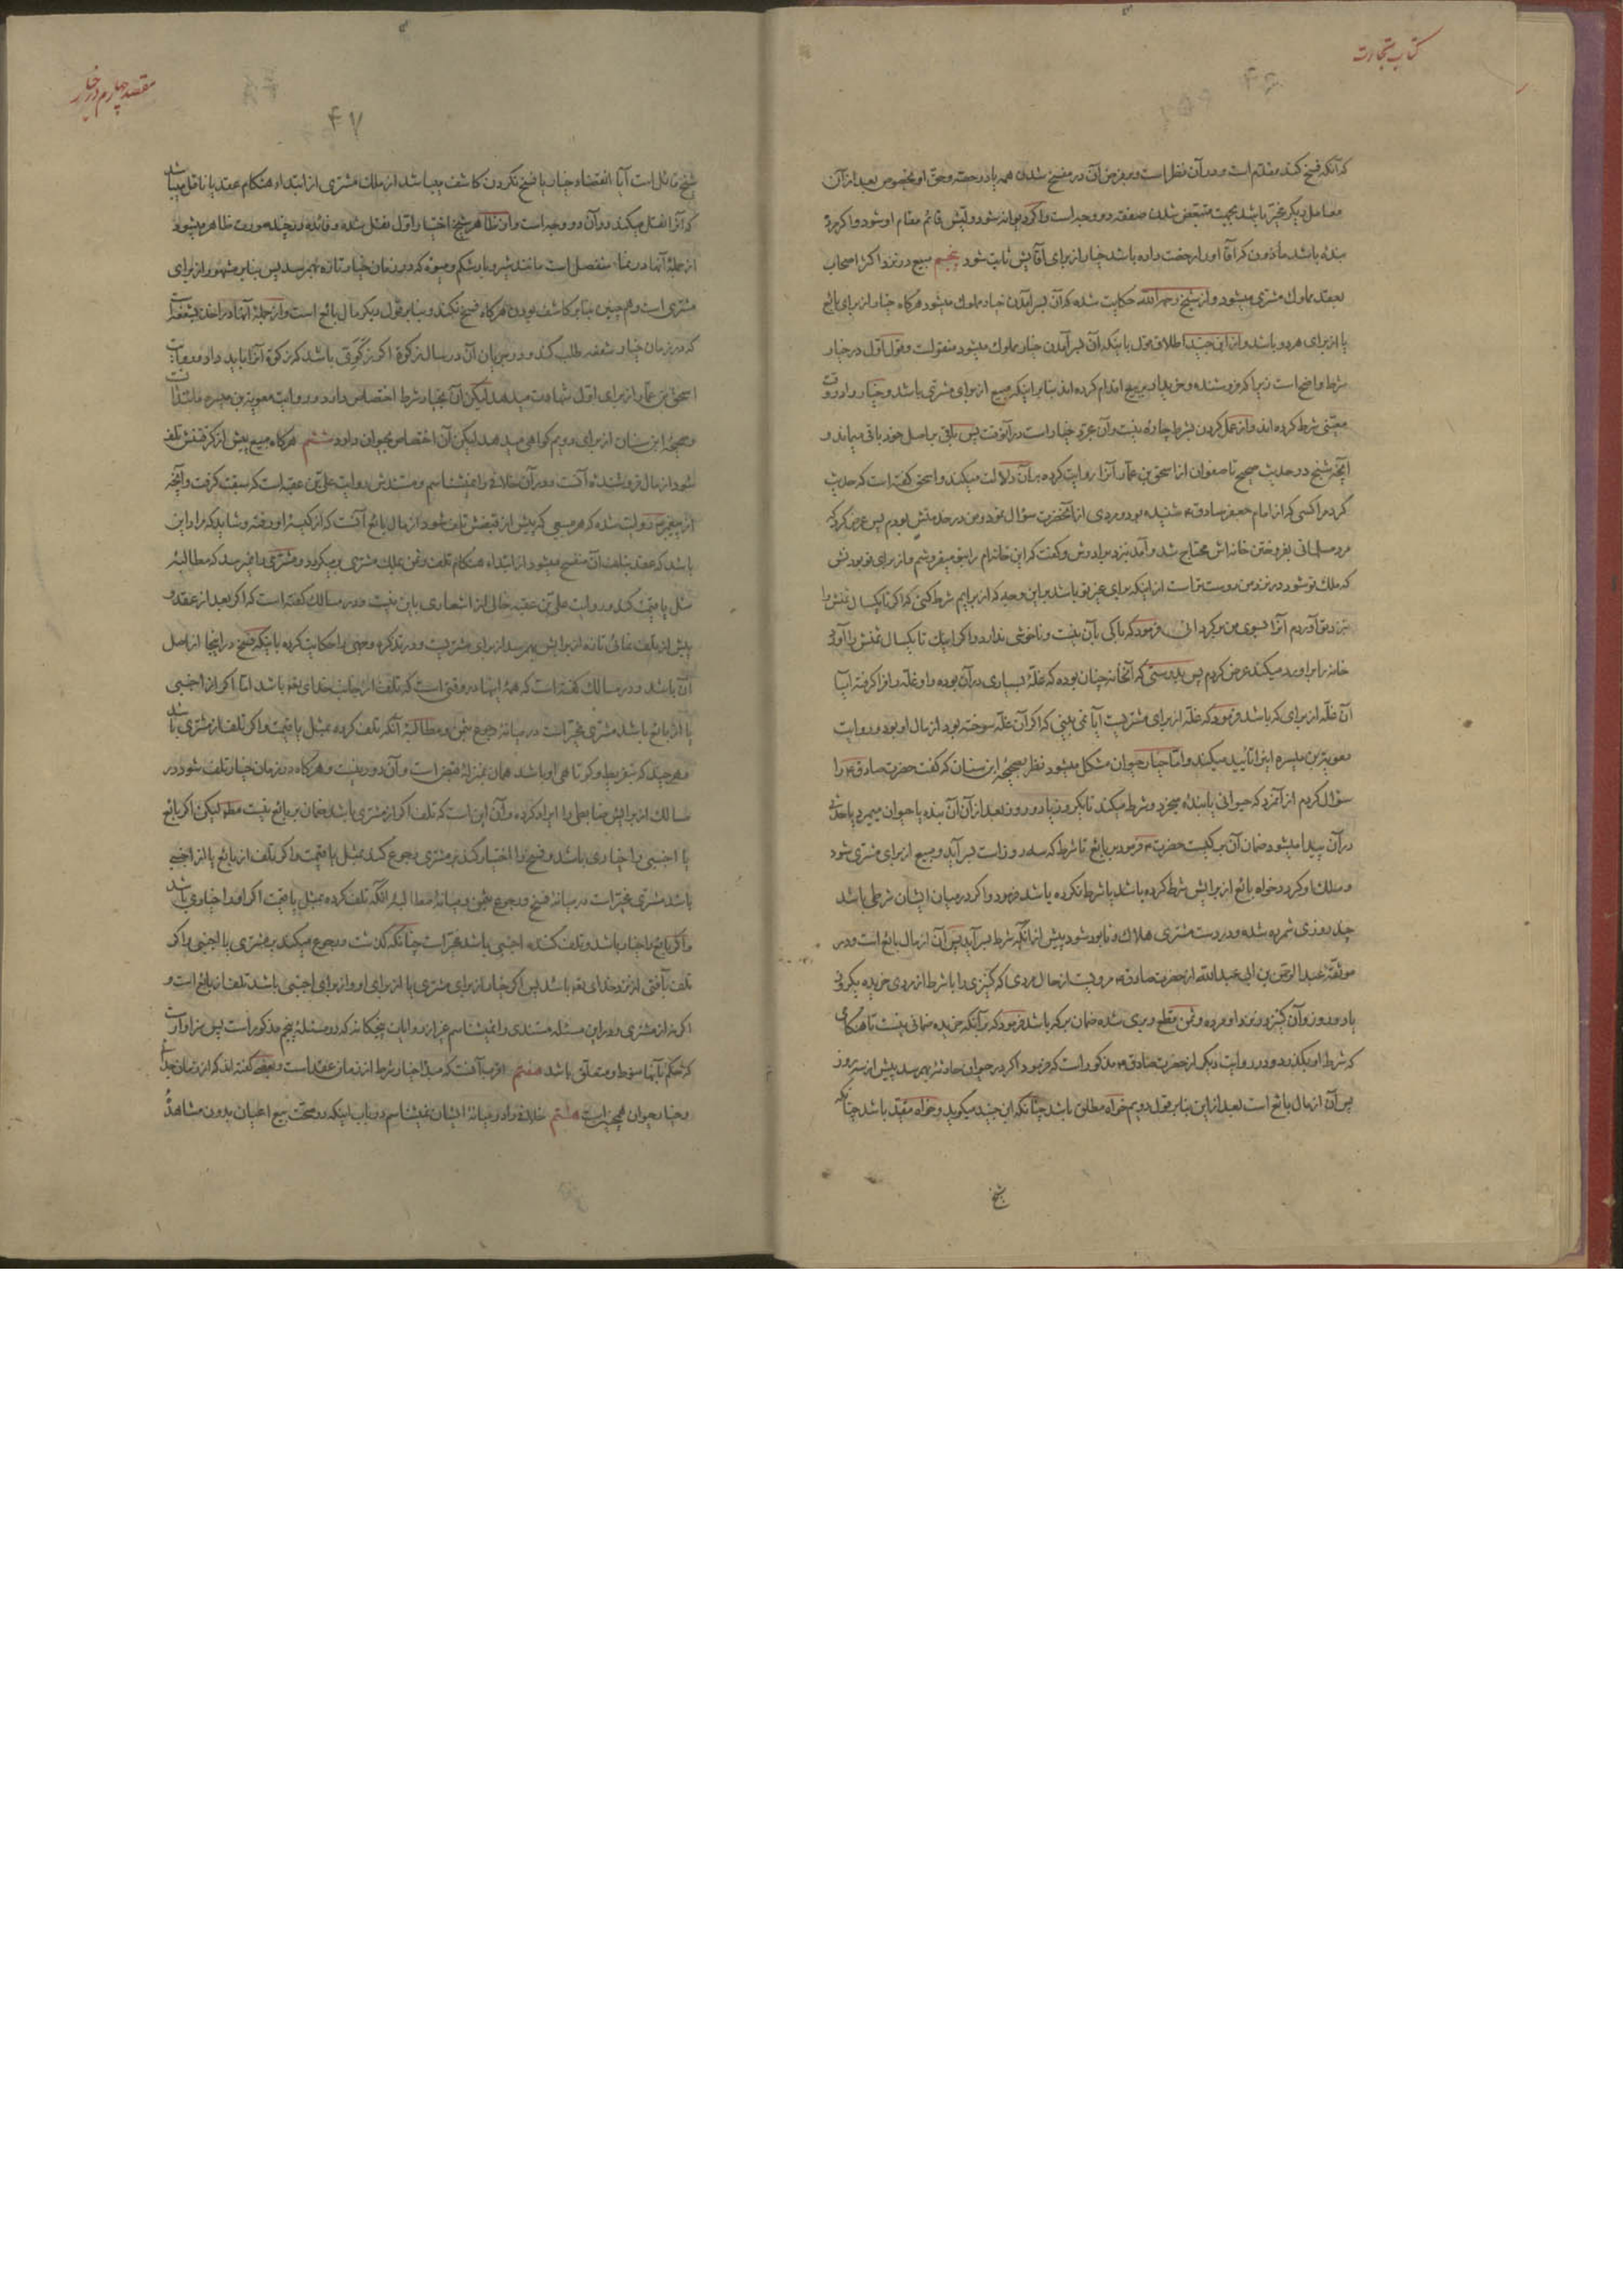 کتاب تجارت
که آنکه فسخ کند مقدّم است و در آن نظر است و بر فرض آن در منفسخ شدن همه یا در حصّه و حق او بخصوص بعد از آن
معامل دیگر مخیّر باشد بجهت متبعّض شدن صفقه دو وجه است و اگر دیوانه شود ولیّش قائم مقام او شود و اگر
بنده باشد مأذون که آقا او را رخصت داده باشد خیار از برای آقایش ثابت شود پنجم مبیع در نزد اکثر اصحاب
بعقد مملوک مشتری میشود و از شیخ رحمه الله حکایت شده که آن بسر آمدن خیار مملوک میشود هرگاه خیار از برای بائع
یا از برای هر دو باشد و از ابن جنید اطلاق قول باینکه آن بسر آمدن خیار مملوک میشود منقولست و قول اوّل در خیار
شرط واضح است زیرا که فروشنده و خریدار بر بیع اقدام کرده‌اند بنا بر اینکه مبیع از برای مشتری باشد و خیار را در وقت
معیّنی شرط کرده‌اند و از عمل کردن بشرط چاره نیست و آن مجرّد خیار است در آنوقت پس باقی بر اصل خود باقی میماند و
آنچه شیخ در حدیث صحیح تا صفوان از اسحق بن عمار آنرا روایت کرده بر آن دلالت میکند و اسحق گفته است که حدیث
کرد مرا کسی که از امام جعفر صادق شنیده بود و مردی از آنحضرت سؤال نمود و من در خدمتش بودم پس عرض کرد که
مرد مسلمانی بفروختن خانه‌اش محتاج شد و آمد نزد برادرش و گفت که این خانه‌ام را بتو میفروشم و از برای تو بودنش
که ملک تو شود در نزد من دوست‌تر است از اینکه برای غیر تو باشد بر این وجه که از برایم شرط کنی که اگر تا یکسال ثمنش را
نزد تو آوردم آنرا بسوی من برگردانی فرمود که باکی بآن نیست و ناخوشی ندارد و اگر اینک تا یکسال ثمنش را آورد
خانه را بر او رد میکند عرض کردم پس بدرستی که آنخانه چنان بوده که غلّهٔ بسیاری در آن بوده و او غلّه را فرا گرفته آیا
آن غلّه از برای که باشد فرمود که غلّه از برای مشتریست آیا نمی‌بینی که اگر آن غلّه سوخته بود از مال او بود و روایت
معویة بن میسره اینرا تأیید میکند و امّا خیار حیوان مشکل میشود نظر بصحیحهٔ ابن سنان که گفت حضرت صادق را
سؤال کردم از آنمرد که حیوانی یا بنده میخرد و شرط میکند تا یکروز یا دو روز و بعد از آن آن بنده یا حیوان میمیرد یا حدثی
در آن پیدا میشود ضمان آن بر کیست حضرت فرمود بر بائع تا شرط که سه روز است بسر آید و مبیع از برای مشتری شود
و ملک او گردد خواه بائع از برایش شرط کرده باشد یا شرط نکرده باشد فرمود و اگر در میان ایشان شرطی باشد
چند روزی شمرده شده و در دست مشتری هلاک و نابود شود پیش از آنکه شرط بسر آید پس آن از مال بائع است و در
موثقهٔ عبد الرحمن بن ابی عبد الله از حضرت صادق مرویست از حال مردی که کنیزی را با شرط از مردی خریده یکروز
یا دو روز و آن کنیز در نزد او مرده و ثمن مقطع و بری شده ضمان بر که باشد فرمود که بر آنکه خریده ضمانی نیست تا هنگامی
که شرط او بگذرد و در روایت دیگر از حضرت صادق مذکور است که فرمود اگر در حیوان حادثه بهم رسد پیش از سه روز
پس آن از مال بائع است بعد از این بنا بر قول دویم خواه مطلق باشد چنانکه ابن جنید میگوید و خواه مقیّد باشد چنانکه
شیخ
مقصد چهارم در خیار
۴۷
شیخ قائل است آیا انقضاء خیار یا فسخ نکردن کاشف میباشد از ملک مشتری از ابتداء هنگام عقد یا ناقل میباشد
که آنرا نقل میکند در آن دو وجه است و از ظاهر شیخ اختیار اوّل نقل شده و فائده در چند صورت ظاهر میشود
از جملهٔ آنها در نماء منفصل است مانند شیر و بار شکم و میوه که در زمان خیار تازه بهم رسد پس بنا بر مشهور از برای
مشتری است و هم چنین بنا بر کاشف بودن هرگاه فسخ نکند و بنا بر قول دیگر مال بائع است و از جملهٔ آنها در اخذ شفعه است
که در زمان خیار شفعه طلب کند و در جریان آن در سال زکوة اگر زکوی باشد که زکوة آنرا باید داد و روایت
اسحق بن عمار از برای اوّل شهادت میدهد لیکن آن بخیار شرط اختصاص دارد و روایت معویة بن میسره مانند آنست
و صحیحهٔ ابن سنان از برای دویم گواهی میدهد لیکن آن اختصاص بحیوان دارد ششم هرگاه مبیع پیش از گرفتنش تلف
شود از مال فروشندهٔ آنست و در آن خلاف را نمیشناسم و مستندش روایت علی بن عقبه است که سبقت گرفت و آنچه
از پیغمبر روایت شده که هر مبیعی که پیش از قبضش تلف شود از مال بائع آنست که از کیسهٔ او رفته و شاید که مراد این
باشد که عقد بتلف آن منفسخ میشود از ابتداء هنگام تلف و ثمن بملک مشتری برمیگردد و مشتری را نمیرسد که مطالبهٔ
مثل یا قیمت کند و روایت علی بن عقبه خالی از اشعاری باین نیست و در مسالک گفته است که اگر بعد از عقد و
پیش از تلف نمائی تازه از برایش بهم رسد از برای مشتریست و در تذکره وجهی را حکایت کرده باینکه فسخ در اینجا از اصل
آن باشد و در مسالک گفته است که همهٔ اینها در وقتی است که تلف از جانب خدای تع باشد امّا اگر از اجنبی
یا از بائع باشد مشتری مخیّر است در میانهٔ رجوع بثمن و مطالبهٔ آنکه تلف کرده بمثل یا قیمت و اگر تلف از مشتری باشد
و هر چند که بتفریط و کوتاهی او باشد همان بمنزلهٔ قبض است و آن دور نیست و هرگاه در زمان خیار تلف شود در
مسالک از برایش ضابطی را ایراد کرده و آن این است که تلف اگر از مشتری باشد ضمان بر بائع نیست مط لیکن اگر بائع
یا اجنبی را خیاری باشد و فسخ را اختیار کند بر مشتری رجوع کند بمثل یا قیمت و اگر تلف از بائع یا از اجنبی
باشد مشتری مخیّر است در میانهٔ فسخ و رجوع بثمن و میانهٔ مطالبهٔ آنکه تلف کرده بمثل یا قیمت اگر او را خیاری باشد
و اگر بائع را خیار باشد و تلف کننده اجنبی باشد مخیّر است چنانکه گذشت و رجوع میکند بر مشتری یا اجنبی و اگر
تلف بآفتی از نزد خدای تع باشد پس اگر خیار از برای مشتری یا از برای او و از برای اجنبی باشد تلف از بائع است و
اگر نه از مشتری و در این مسئله مستندی را نمیشناسم غیر از روایات پنجگانه که در مسئلهٔ پنجم مذکور است پس سزاوار آنست
که حکم بآنها منوط و متعلّق باشد هفتم اقرب آنست که مبدأ خیار شرط از زمان عقد است و بعضی گفته‌اند که از زمان جدا
و خیار حیوان همچنین است هشتم خلاف را در میانهٔ ایشان نمیشناسم در باب اینکه در صحّت بیع اعیان بدون مشاهدهٔ